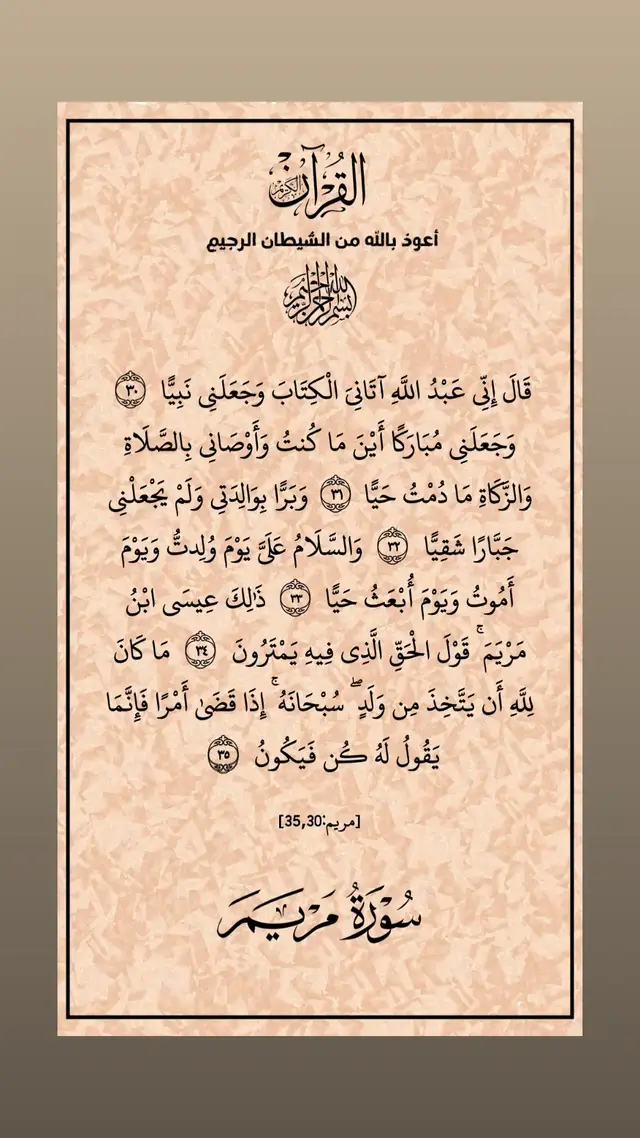 القرآن الكريم
أعوذ بالله من الشيطان الرجيم
بسم الله الرحمن الرحيم
قَالَ إِنِّي عَبْدُ اللَّهِ آتَانِيَ الْكِتَابَ وَجَعَلَنِي نَبِيًّا ٣٠
وَجَعَلَنِي مُبَارَكًا أَيْنَ مَا كُنتُ وَأَوْصَانِي بِالصَّلَاةِ
وَالزَّكَاةِ مَا دُمْتُ حَيًّا ٣١ وَبَرًّا بِوَالِدَتِي وَلَمْ يَجْعَلْنِي
جَبَّارًا شَقِيًّا ٣٢ وَالسَّلَامُ عَلَيَّ يَوْمَ وُلِدتُّ وَيَوْمَ
أَمُوتُ وَيَوْمَ أُبْعَثُ حَيًّا ٣٣ ذَٰلِكَ عِيسَى ابْنُ
مَرْيَمَ ۚ قَوْلَ الْحَقِّ الَّذِي فِيهِ يَمْتَرُونَ ٣٤ مَا كَانَ
لِلَّهِ أَن يَتَّخِذَ مِن وَلَدٍ ۖ سُبْحَانَهُ ۚ إِذَا قَضَىٰ أَمْرًا فَإِنَّمَا
يَقُولُ لَهُ كُن فَيَكُونُ ٣٥
[مريم:35,30]
سُورَةُ مَرْيَمَ